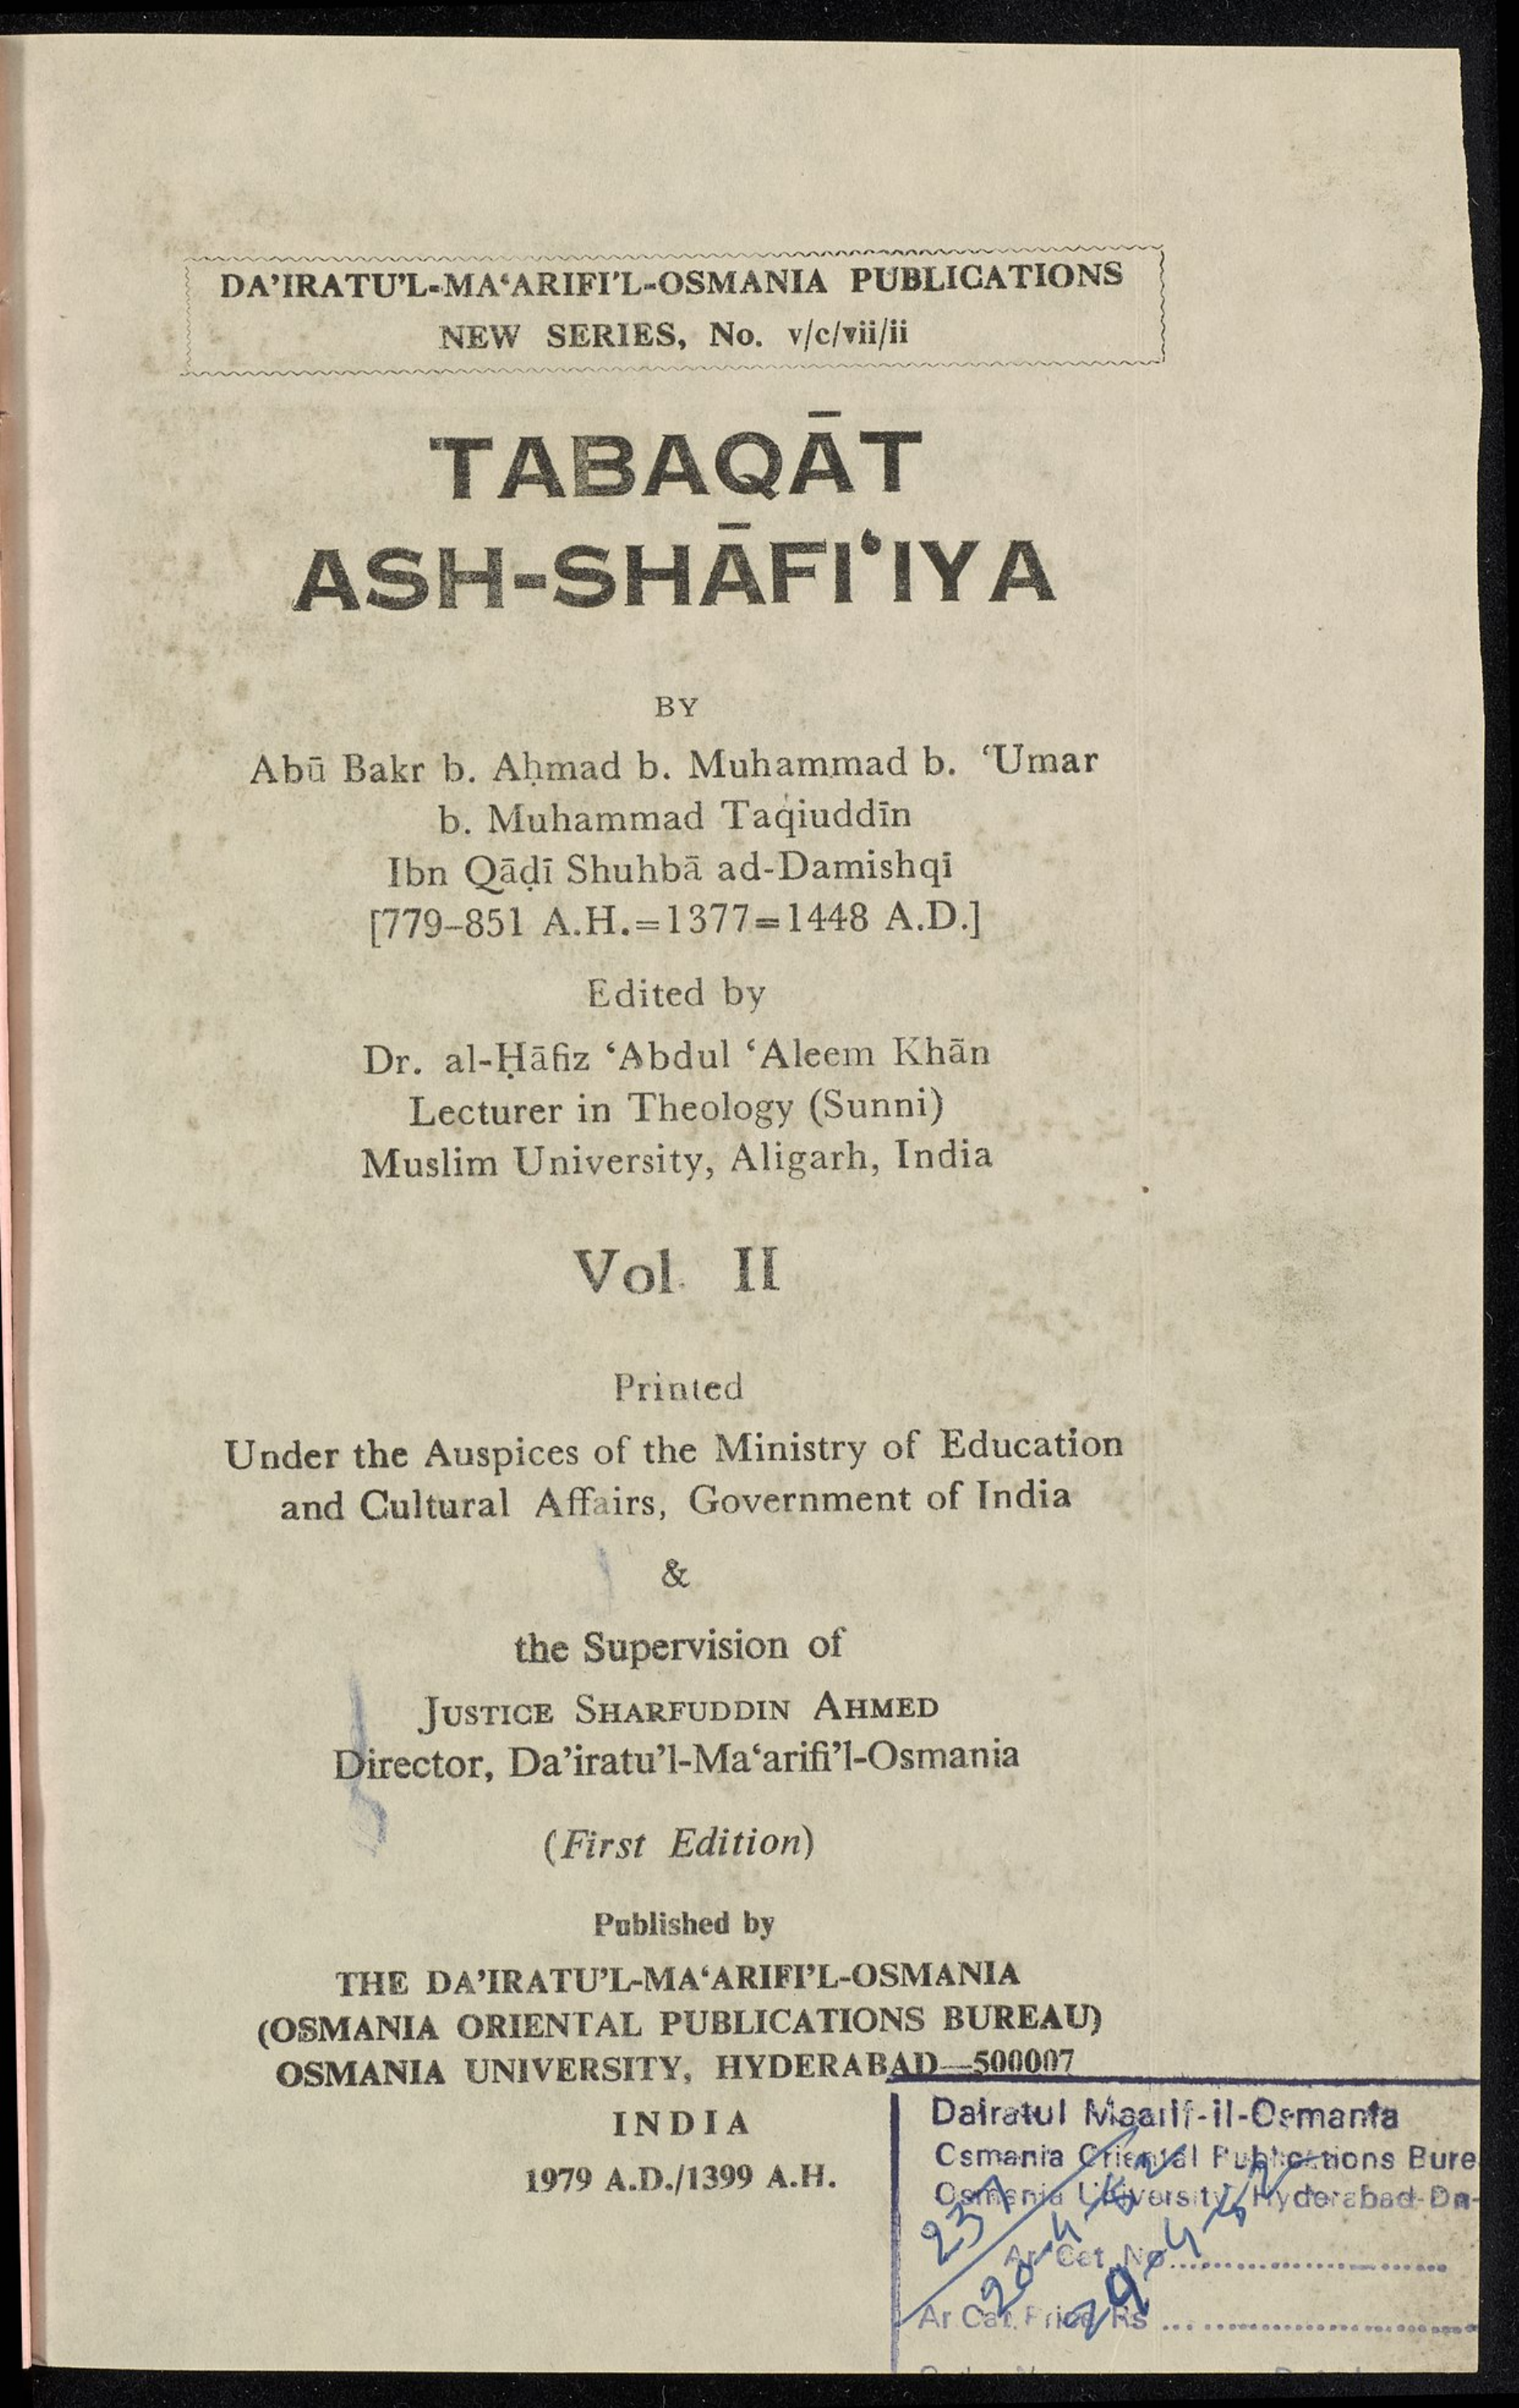 DA’IRATU’L-MA‘ARIFI’L-OSMANIA PUBLICATIONS
NEW SERIES, No. v/c/vii/ii
TABAQĀT
ASH-SHĀFI‘IYA
BY
Abū Bakr b. Aḥmad b. Muhammad b. ‘Umar
b. Muhammad Taqiuddīn
Ibn Qāḍī Shuhbā ad-Damishqī
[779–851 A.H.=1377=1448 A.D.]
Edited by
Dr. al-Ḥāfiz ‘Abdul ‘Aleem Khān
Lecturer in Theology (Sunni)
Muslim University, Aligarh, India
Vol. II
Printed
Under the Auspices of the Ministry of Education
and Cultural Affairs, Government of India
&
the Supervision of
JUSTICE SHARFUDDIN AHMED
Director, Da’iratu’l-Ma‘arifi’l-Osmania
(First Edition)
Published by
THE DA’IRATU’L-MA‘ARIFI’L-OSMANIA
(OSMANIA ORIENTAL PUBLICATIONS BUREAU)
OSMANIA UNIVERSITY, HYDERABAD—500007
INDIA
1979 A.D./1399 A.H.
Dairatul Maarif-il-Osmania
Osmania Oriental Publications Bure
Osmania University, Hyderabad-Dn-
Ar Cat. No..............................
Ar Cat. Price Rs ..............................